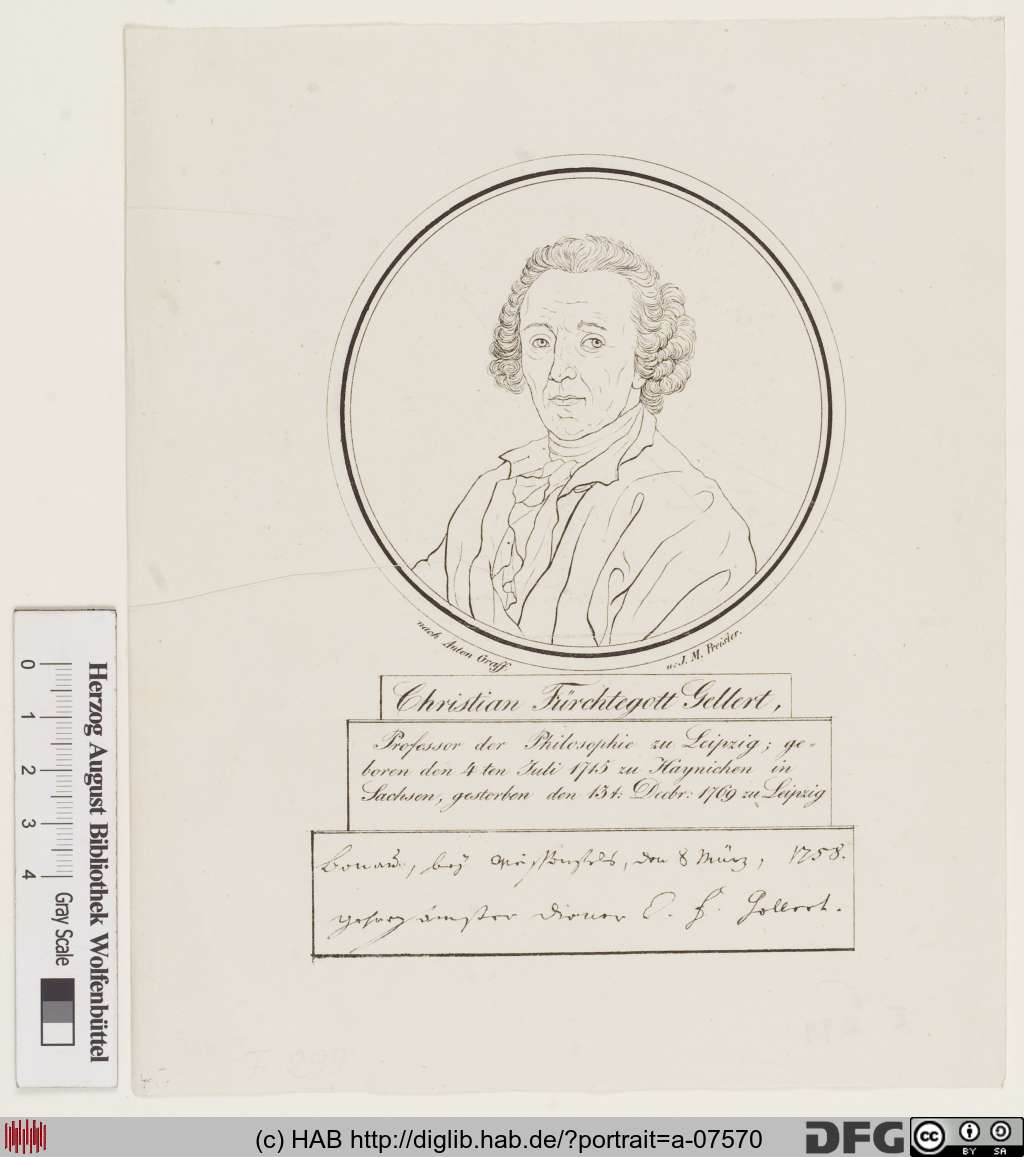 nach Anton Graff.
u: J. M. Preisler.
Christian Fürchtegott Gellert,
Professor der Philosophie zu Leipzig; ge-
boren den 4ten Juli 1715 zu Haynichen in
Sachsen, gestorben den 13t: Decbr: 1769 zu Leipzig
Bonau, bey Weissenfels, den 8 März, 1758.
gehorsamster Diener C. F. Gellert.
0 1 2 3 4
Herzog August Bibliothek Wolfenbüttel
Gray Scale
(c) HAB http://diglib.hab.de/?portrait=a-07570
DFG
cc
BY SA